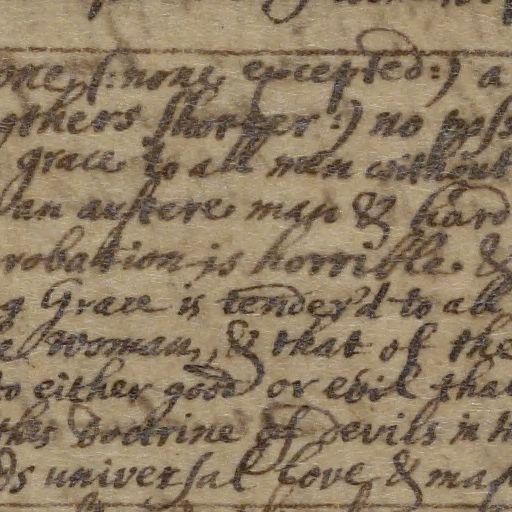 one, (: none excepted :) a
others shorter :) no less
grace to all men without
an austere man & hard
robation is horrible &
g Grace is tender'd to all
e Woman, & that of the
to either good or evil that
this Doctrine of Devils in
ds universal Love & ma